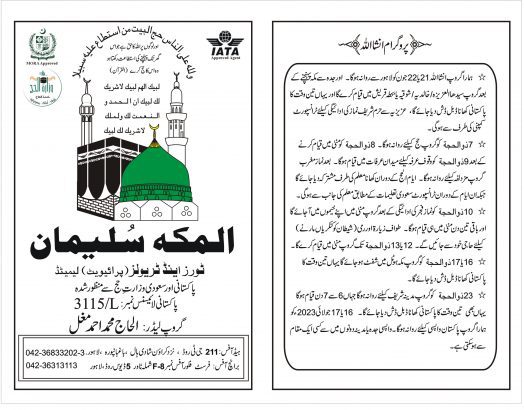 MORA Approved
IATA
Approved Agent
ولله علی الناس حج البیت من استطاع علیہ سبیلا
اور لوگوں پر اللہ کا حق ہے جو اس
گھر تک پہنچنے کی استطاعت رکھتا ہو
وہ اس کا حج کرے (القرآن)
لبیك اللهم لبیك لاشریك
لك لبیك ان الحمد و
النعمت لك ولملك
لاشریك لك لبیك
المکہ سُلیمان
ٹورز اینڈ ٹریولز (پرائیویٹ) لمیٹڈ
پاکستانی اور سعودی وزارت حج سے منظور شدہ
پاکستانی لائیسنس نمبر: 3115/L
گروپ لیڈر: الحاج محمد احمد مغل
ہیڈ آفس: 211 جی ٹی روڈ، نزد کراؤن شادی ہال، باغبانپورہ، لاہور۔ 3-36833202-042
برانچ آفس: فرسٹ فلور آفس نمبر F-8 شملہ ٹاور 5 ڈیوس روڈ، لاہور 36313113-042
پروگرام انشااللہ
☆ ہمارا گروپ انشااللہ 21 یا 22 جون کو لاہور سے روانہ ہوگا۔ اور جدہ سے مکہ پہنچنے کے
بعد گروپ سیدھا العزیزیہ/خالدیہ/شوقیہ یا بطہ قریش میں قیام کرے گا اور یہاں تین وقت کا
پاکستانی کھانا ڈبل ڈش دیا جائے گا، عزیزیہ سے حرم شریف نماز کی ادائیگی کے لیئے ٹرانسپورٹ
کمپنی کی طرف سے ہوگی۔
☆ 7 ذوالحجة کو گروپ حج کیلئے روانہ ہوگا۔ 8 ذوالحجة کو منٰی میں قیام کرنے
کے بعد 9 ذوالحجة کو وقوف عرفہ کیلئے میدان عرفات میں قیام ہوگا۔ بعد نماز مغرب
گروپ مزدلفہ کیلئے روانہ ہوگا۔ ایام الحج کے دوران کھانا معلم کی طرف مشترکہ دیا جائے گا
جبکہ ان ایام کے دوران ٹرانسپورٹ سعودی تعلیمات کے مطابق معلم کی جانب سے ہوگی۔
☆ 10 ذوالحجة کو نماز فجر کی ادائیگی کے بعد گروپ منٰی میں اپنے خیموں میں آجائے گا
اور باقی تین دن منٰی میں ہی قیام ہوگا۔ طواف زیارہ اور رمی (شیطان کو کنکریاں مارنے)
کیلئے حاجی خود سے جائیں گے۔ 12 یا 13 ذوالحجة تک گروپ منٰی میں قیام کرے گا۔
☆ 16 یا 17 ذوالحجة کو گروپ مکہ ہوٹل میں شفٹ ہو جائے گا جہاں تین وقت کا
پاکستانی کھانا ڈبل ڈش دیا جائے گا۔
☆ 23 ذوالحجة کو گروپ مدینہ شریف کیلئے روانہ ہوگا جہاں 6 سے 7 دن قیام ہوگا
یہاں بھی تین وقت کا پاکستانی کھانا ڈبل ڈش دیا جائے گا۔ 16 یا 17 جولائی 2023 کو
ہمارا گروپ پاکستان واپسی کیلئے روانہ ہوگا۔ واپسی جدہ یا مدینہ دونوں میں سے کسی ایک مقام
سے ہو سکتی ہے۔